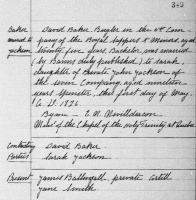 Baker
married to
Jackson
David Baker, Bugler in the 4th Com
pany of the Royal Sappers & Miners, aged
twenty five years, Bachelor, was married
by Banns duly published, to Sarah,
daughter of Private John Jackson of
the Seven Company, aged nineteen
years spinster, this first day of May,
A. D. 1836.
By me - E. W.
of the Chapel of the Holy Trinity at Quebec
Contracting
Parties
David Baker
Sarah Jackson
Present
James, private
Jane Smith